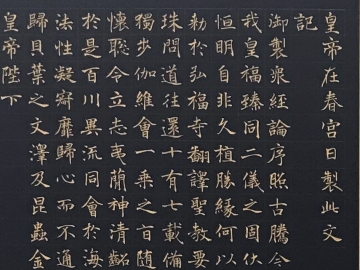 皇帝在春宮日製此文
記
御製衆經論序照古騰今
我皇福臻同二儀之固伏
恒明自非久植勝緣何以
勑於弘福寺翻譯聖教要
珠問道往還十有七載備
獨步伽維會一乘之旨随
懷聡令立志夷蕑神清齠
於是百川異流同會於海
法性凝寂靡歸心而不通
歸貝葉之文澤及昆蟲金
皇帝陛下